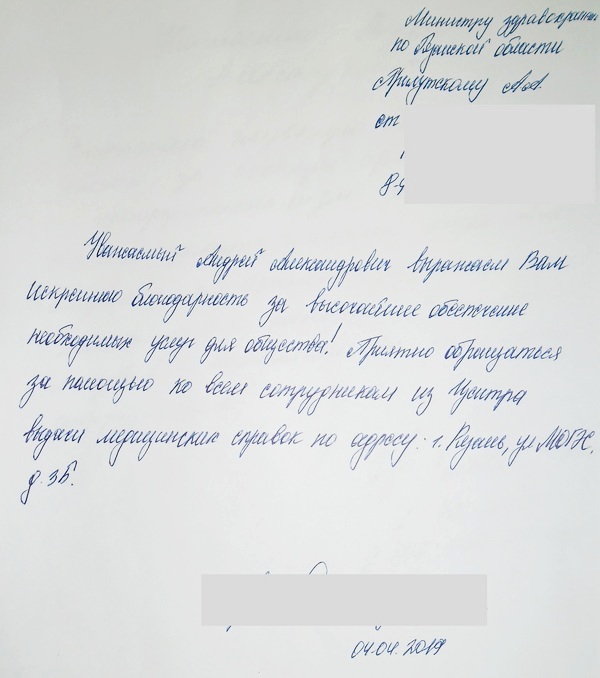 Министру здравоохранения
по Рязанской области
Прилуцкому А.А.
от
8-9
Уважаемый Андрей Александрович выражаем Вам
Искреннюю благодарность за высочайшее обеспечение
необходимых услуг для общества! Приятно обращаться
за помощью ко всем сотрудникам из Центра
выдачи медицинских справок по адресу: г. Рязань, ул МОГЭС,
д. 3Б.
04.04.2019